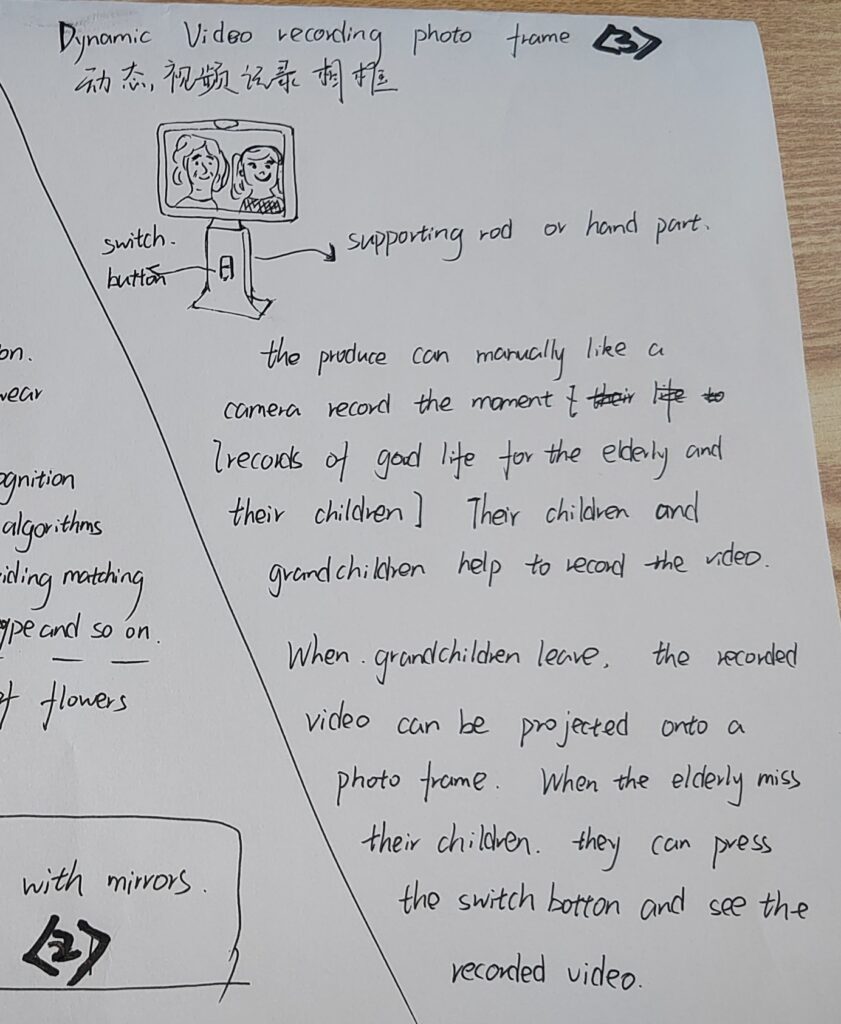 Dynamic Video recording photo frame <3>
动态,视频记录相框
switch.
button
supporting rod or hand part.
the produce can manually like a
camera record the moment [ their life to
[records of good life for the elderly and
their children] Their children and
grandchildren help to record the video.
When. grandchildren leave, the recorded
video can be projected onto a
photo frame. When the elderly miss
their children. they can press
the switch botton and see the
recorded video.
on.
wear
ognition
algorithms
iding matching
ype and so on.
of flowers
with mirrors.
<2>